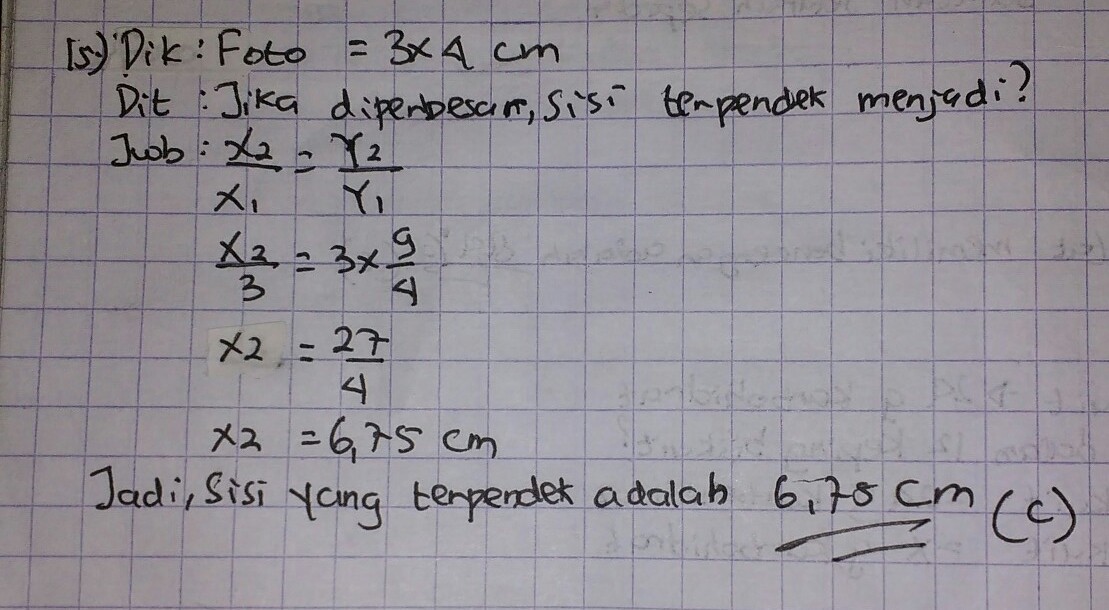 15.) Dik : Foto = 3x4 cm
Dit : Jika diperbesarr, sisi terpendek menjadi?
Jwb : x2/x1 = Y2/Y1
x2/3 = 3x 9/4
x2 = 27/4
x2 = 6,75 cm
Jadi, sisi yang terpendek adalah 6,75 cm (c)